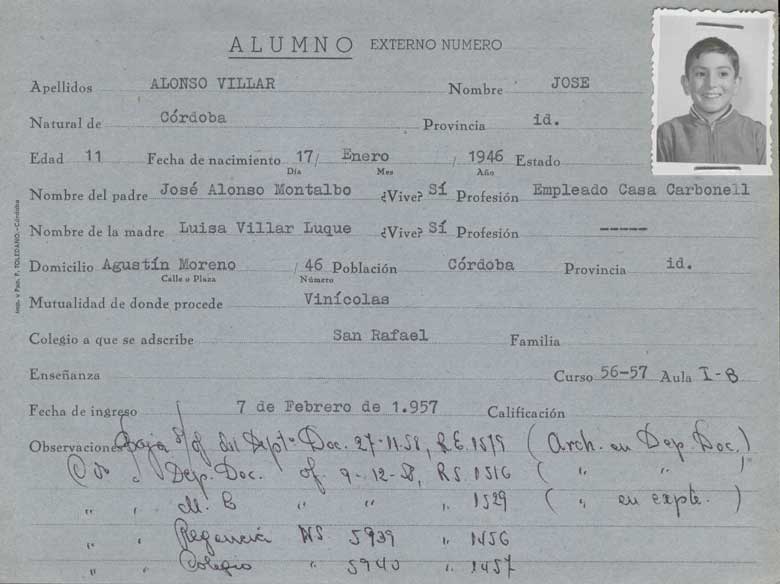 ALUMNO EXTERNO NUMERO
Apellidos ALONSO VILLAR Nombre JOSE
Natural de Córdoba Provincia id.
Edad 11 Fecha de nacimiento 17/ Enero / 1946 Estado
Día Mes Año
Nombre del padre José Alonso Montalbo ¿Vive? Sí Profesión Empleado Casa Carbonell
Nombre de la madre Luisa Villar Luque ¿Vive? Sí Profesión -----
Domicilio Agustín Moreno / 46 Población Córdoba Provincia id.
Calle o Plaza Número
Mutualidad de donde procede Vinícolas
Colegio a que se adscribe San Rafael Familia
Enseñanza
Curso 56-57 Aula I-B
Fecha de ingreso 7 de Febrero de 1.957 Calificación
Observaciones Baja s/of del Deptº Doc. 27-11-58, R.E. 1579 (Arch. en Dep. Doc.)
" Dep. Doc. of 9-12-58, RS. 1516 ( " " )
" " M. " " " 1529 ( " en expte. )
" " Regencia NS 5939 " 1456
" " Colegio " 5940 " 1457
Imp. y Pap. F. TOLEDANO.-Córdoba